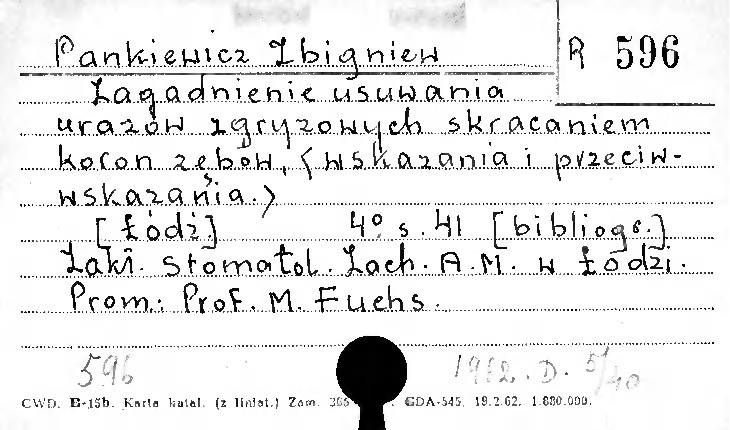 Pankiewicz Zbigniew
R 596
Zagadnienie usuwania
urazów zgryzowych skracaniem
koron zębów, (wskazania i przeciw-
wskazania.)
[Łódź] 4° s. 41 [bibliogr.]
Zakł. Stomatol. Zach. A.M. w Łodzi.
Prom.: Prof. M. Fuchs.
596 1962. D. 5/40
CWD. B-15b. Karta katal. (z liniat.) Zam. GDA-545. 19.2.62. 1.880.000.